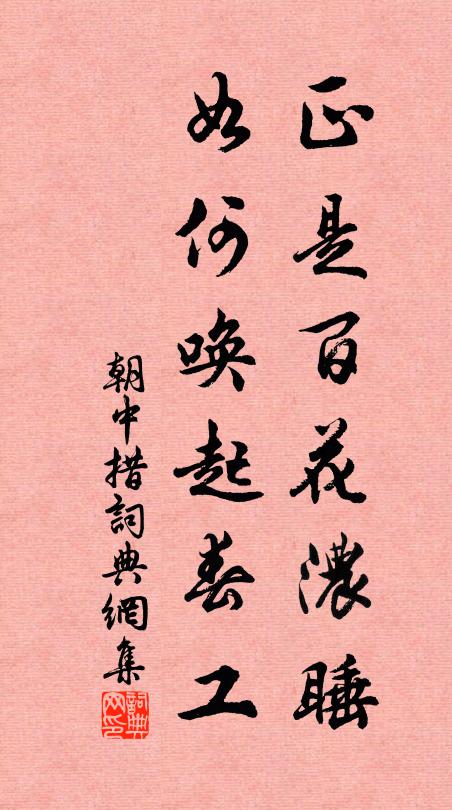 正是百花濃睡
如何喚起春工
朝中措詞典網集
詞典网印